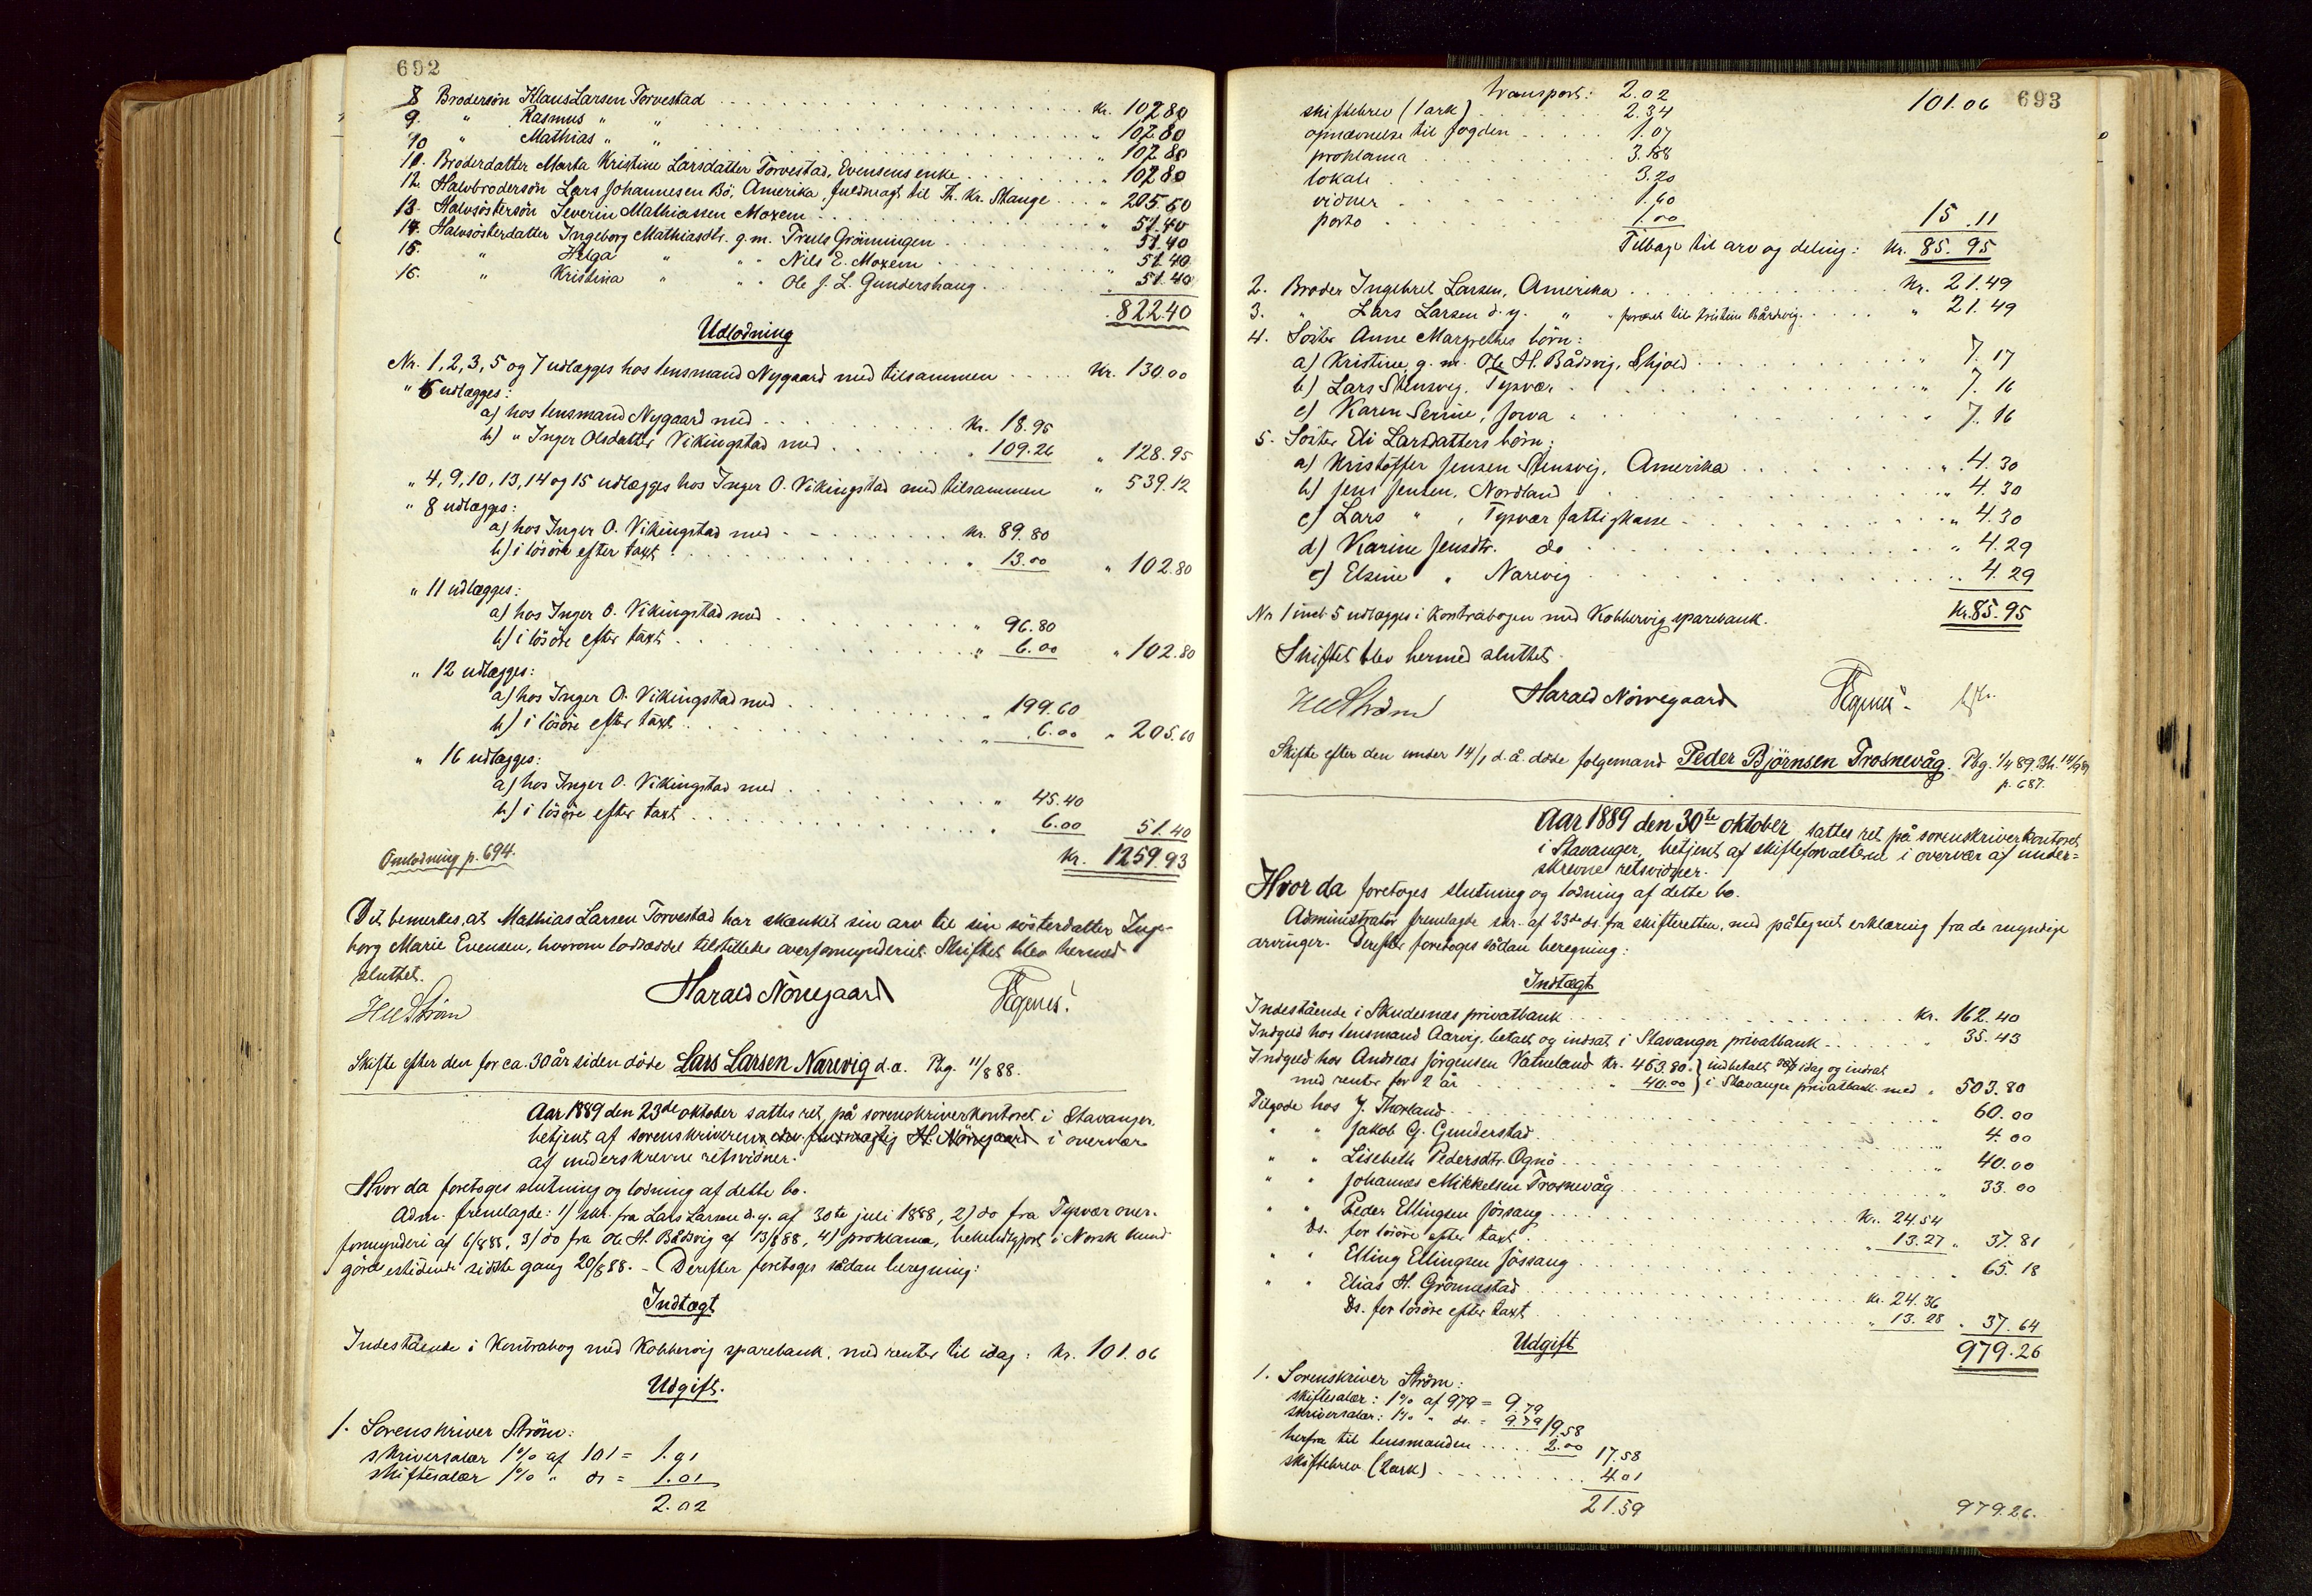 692
8 Brodersön Klaus Larsen Torvestad . . . kr. 102.80
9. " Rasmus " " . . . " 102.80
10 " Mathias " " . . . " 102.80
11. Broderdatter Marta Kristine Larsdatter Torvestad, Evensens enke . . . " 102.80
12. Halvbrodersön Lars Johannesen Bö, Amerika, fuldmagt til Th. Kr. Stange . . . " 205.60
13. Halvsöstersön Severin Mathiassen Moxem . . . " 51.40
14. Halvsösterdatter Ingeborg Mathiasdtr. g.m. Truls Grönningen . . . " 51.40
15. " Helga " " " Nils E. Moxem . . . " 51.40
16. " Kristina " " " Ole J. L. Gundershaug . . . " 51.40
822.40
Udlodning
Nr. 1, 2, 3, 5 og 7 udlægges hos lensmand Nygaard med tilsammen . . . Kr. 130.00
" 6 udlægges:
a) hos lensmand Nygaard med . . . Kr. 18.95
b) " Inger Olsdatter Vikingstad med . . . " 109.26 " 128.95
" 4, 9, 10, 13, 14 og 15 udlægges hos Inger O. Vikingstad med tilsammen " 539.12
" 8 udlægges:
a) hos Inger O. Vikingstad med . . . kr. 89.80
b) i lösöre efter taxt . . . " 13.00 " 102.80
" 11 udlægges:
a) hos Inger O. Vikingstad med . . . " 96.80
b) i lösöre efter taxt . . . " 6.00 " 102.80
" 12 udlægges:
a) hos Inger O. Vikingstad med . . . " 199.60
b) i lösöre efter taxt . . . " 6.00 " 205.60
" 16 udlægges:
a) hos Inger O. Vikingstad med . . . " 45.40
b) i lösöre efter taxt . . . " 6.00 51.40
Omlodning p. 694. Kr. 1259.93
Det bemerkes, at Mathias Larsen Torvestad har skænket sin arv til sin sösterdatter Inge-
borg Marie Evensen, hvorom lodseddel tilstilledes overformynderiet. Skiftet blev hermed
sluttet.
HuStröm Harald Nörregaard
Skifte efter den for ca. 30 år siden döde Lars Larsen Narevig d.æ. Pbg. 11/8 88.
Aar 1889 den 23de oktober sattes ret på sorenskriverkontoret i Stavanger
betjent af sorenskriveren ved edsv. fuldmægtig H. Nörregaard i overvær
af underskrevne retsvidner.
Hvor da foretoges slutning og lodning af dette bo.
Adm. fremlagde: 1) skr. fra Lars Larsen d.y. af 30te juli 1888, 2) do fra Tysvær over-
formynderi af 6/8 88, 3) do fra Ole H. Bådsvig af 13/8 88, 4) proklama, bekendtgjort i Norsk kund-
görelsestidende sidste gang 20/8 88. - Derefter foretoges sådan beregning:
Indtægt
Indestående i Kontrabog med Kobbervig sparebank, med renter til idag: Kr. 101.06
Udgift.
1. Sorenskriver Ström:
skriversalær 1% af 101 = 1.01
skiftesalær 1% " ds = 1.01
2.02
693
transport: 2.02 101.06
skiftebrev (1 ark) . . . 2.34
opnævnelse til fogden . . . 1.07
proklama . . . 3.88
lokale . . . 3.20
vidner . . . 1.60
porto . . . 1.00 15.11
Tilbage til arv og deling: Kr. 85.95
2. Broder Ingebret Larsen, Amerika . . . Kr. 21.49
3. " Lars Larsen d.y. " " Kristine Bådsvig . . . " 21.49
4. Söster Anne Margrethes börn:
a) Kristine g.m. Ole H. Bådsvig, Skjold . . . " 7.17
b) Lars Stensvig, Tysvær . . . " 7.16
c) Karen Serine, . . . " 7.16
5. Söster Eli Larsdatters börn:
a) Kristoffer Jensen Stensvig, Amerika . . . " 4.30
b) Jens Jensen, Nordland . . . " 4.30
c) Lars " , Tysvær fattigkasse . . . " 4.30
d) Karine Jensdtr. do . . . " 4.29
e) Elsine " Narevig . . . " 4.29
Kr. 85.95
Nr. 1 incl. 5 udlægges i Kontrabogen med Kobbervig sparebank.
Skiftet blev hermed sluttet.
HuStröm Harald Nörregaard
Skifte efter den under 14/1 d.å. döde folgemand Peder Björnsen Trosnevåg. Pbg. 1/4 89. Bh. 14/9 89
p. 687.
Aar 1889 den 30te oktober sattes ret på sorenskriverkontoret
i Stavanger, betjent af skifteforvalteren i overvær af under=
skrevne retsvidner.
Hvor da foretoges slutning og lodning af dette bo.
Administrator fremlagde skr. af 23de ds. fra skifteretten, med påtegnet erklæring fra de myndige
arvinger. Derefter foretoges sådan beregning:
Indtægt
Indestående i Skudesnæs privatbank . . . Kr. 162.40
Indgæld hos lensmand Aarvig, betalt og indsat i Stavanger privatbank . . . " 35.43
Indgæld hos Andreas Jörgensen Vatneland Kr. 463.80. } indbetalt idag og indsat
med renter for 2 år . . . " 40.00 } i Stavanger privatbank med " 503.80
Tilgode hos J. Thorland . . . 60.00
" " Jakob G. Gunderstad . . . 4.00
" " Lisebeth Pedersdtr. Ognö . . . " 40.00
" " Johannes Mikkelsen Trosnevåg . . . " 33.00
" " Peder Ellingsen Jössang . . . Kr. 24.54
Ds. for lösöre efter taxt . . . " 13.27 " 37.81
" " Elling Ellingsen Jössang . . . " 65.18
" " Elias H. Grönnestad . . . Kr. 24.36
Ds. for lösöre efter taxt . . . " 13.28 " 37.64
979.26
Udgift
1. Sorenskriver Ström:
skiftesalær: 1% af 979 = 9.79
skriversalær: 1% " ds. = 9.79 19.58
herfra til lensmanden . . . 2.00 17.58
skiftebrev (2 ark) . . . 4.01
21.59 979.26.